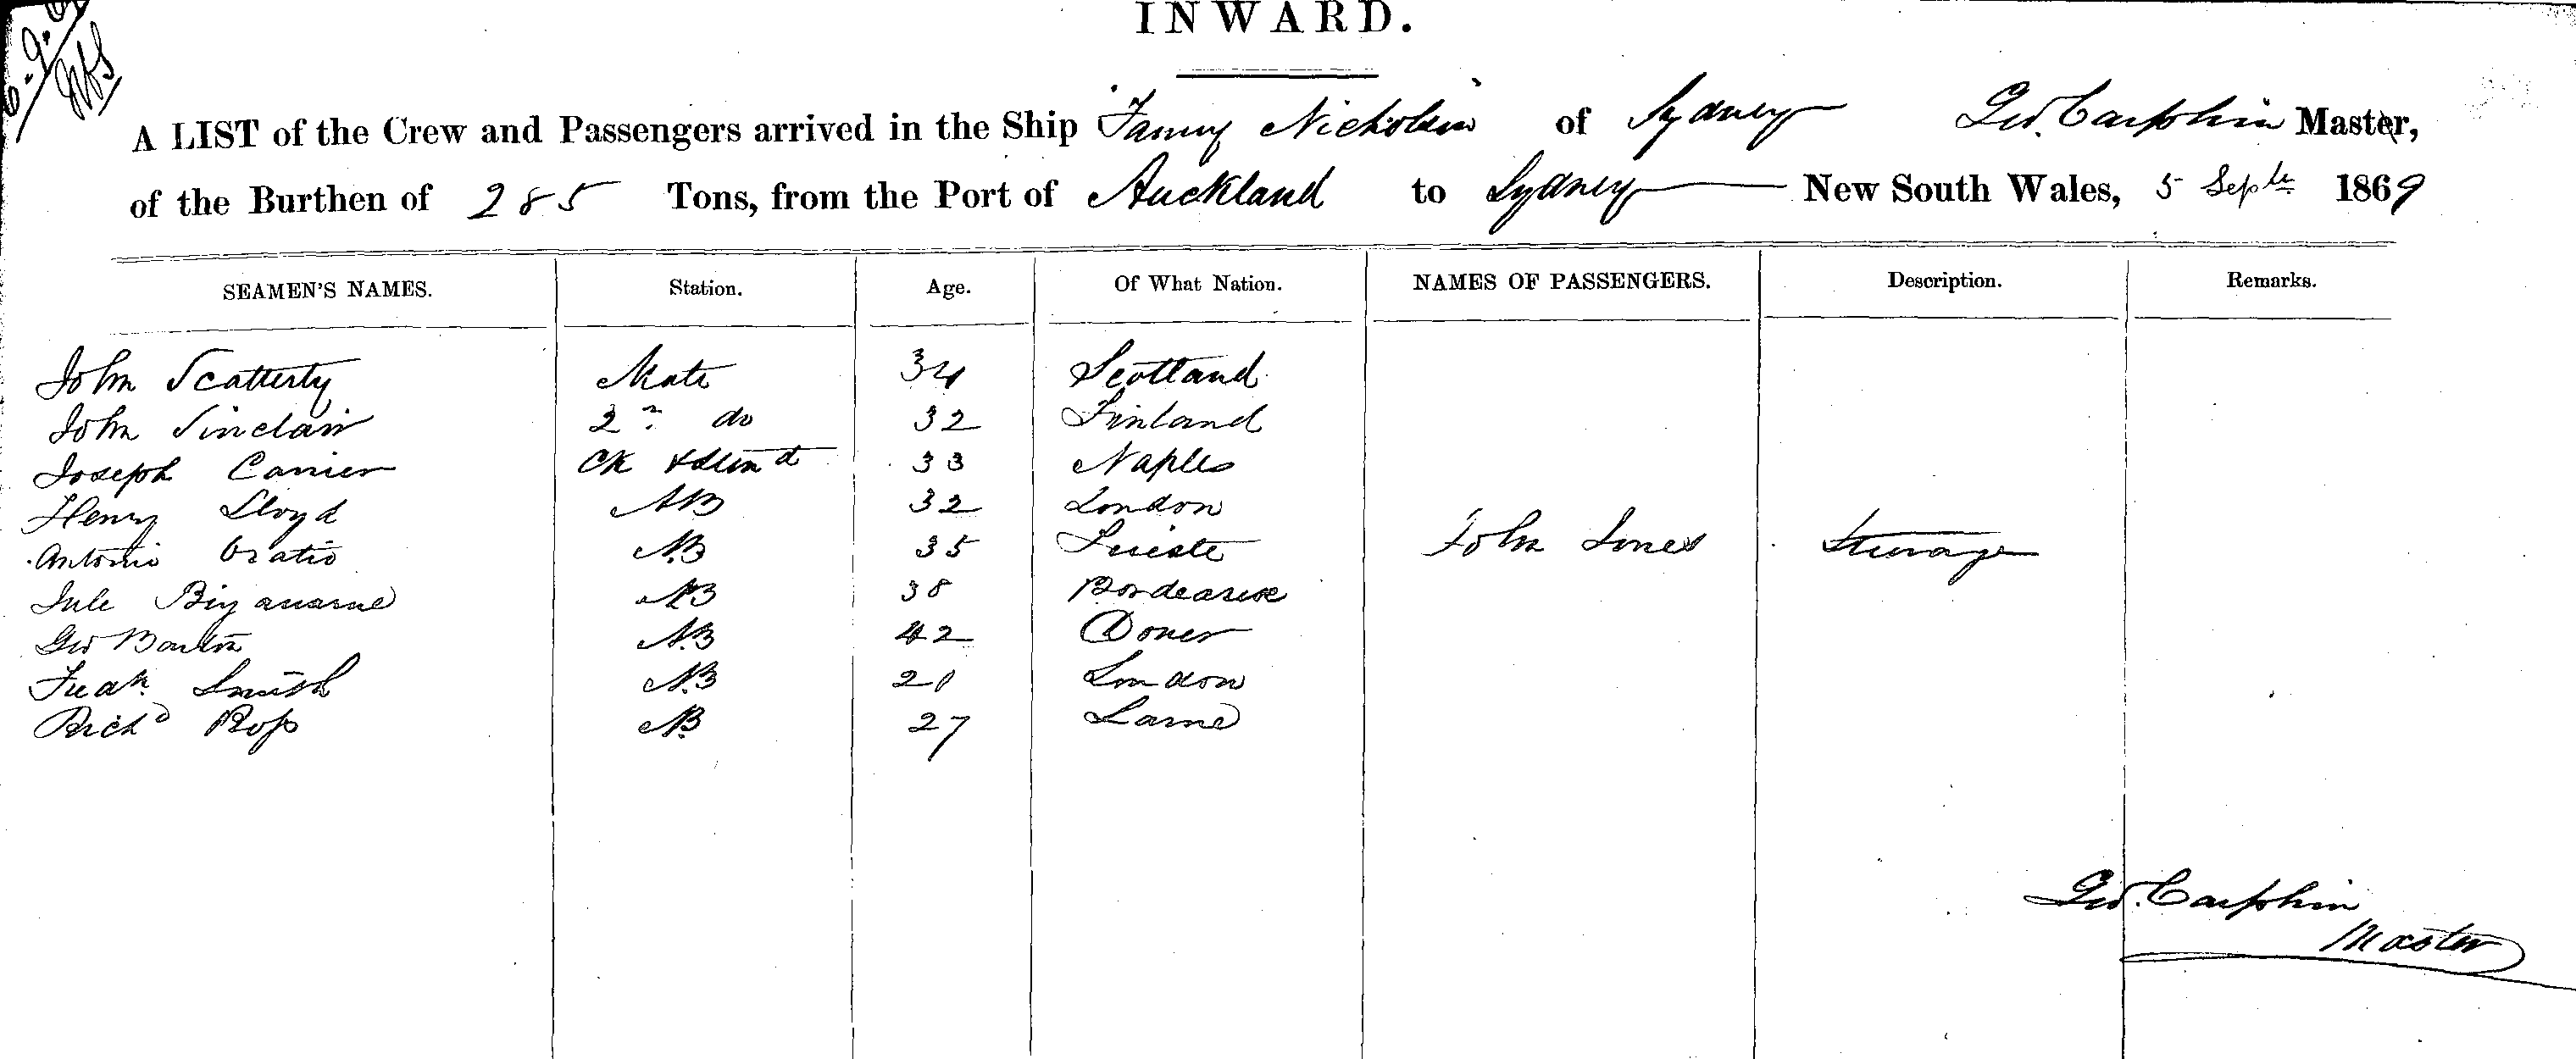 INWARD.
A LIST of the Crew and Passengers arrived in the Ship Fanny Nicholson of Sydney Geo. Carphin Master,
of the Burthen of 285 Tons, from the Port of Auckland to Sydney New South Wales, 5 Septr 1869
SEAMEN'S NAMES. Station. Age. Of What Nation. NAMES OF PASSENGERS. Description. Remarks.
John Scatterty Mate 34 Scotland
John Sinclair 2n do 32 Finland
Joseph Carrier Ck & Stewd 33 Naples
Henry Lloyd AB 32 London
Antonio Oratio AB 35 Trieste John Jones Steerage
Jule AB 38 Bordeaux
Geo Boulton AB 42 Dover
Fredk Smith AB 21 London
Richd Ross AB 27 Larne
Geo. Carphin
Master